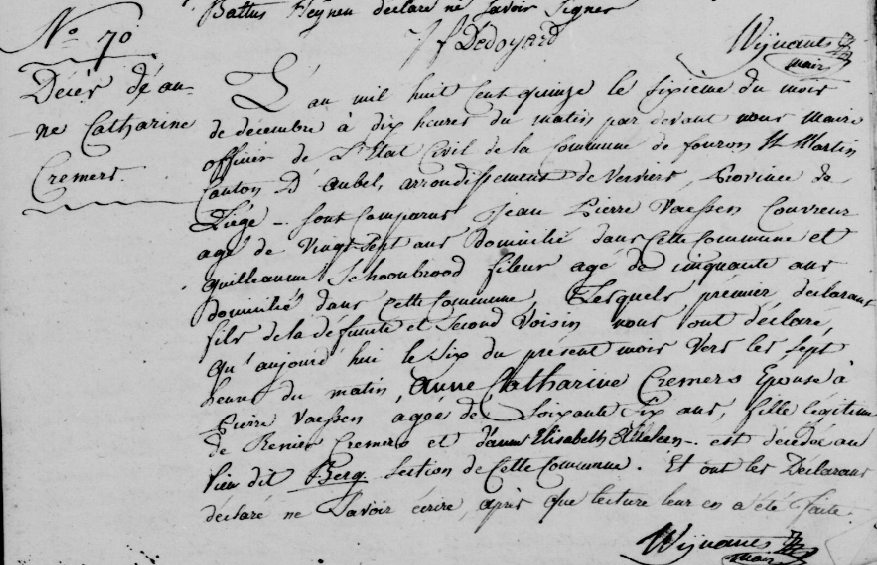 Battus Heynen declaré ne Savoir Signer
N.o 70
Wijnants
maire
Décès d'an-
ne Catharine
Cremers.
L'an mil huit Cent quinze le Sixième du mois
de decembre à dix heures du matin par devant nous maire
officier de L'Etat Civil de la Commune de fouron St Martin
Canton D'aubel, arrondissement de Verviers, Province de
Liège – Sont Comparus Jean Pierre Vaessen Couvreur
agé de Vingt Sept ans Domicilié dans Cette Commune et
guilleaume Schoonbrood fileur agé de cinquante ans
Domicilié dans Cette Commune, Lesquels prémier déclarant
fils de la défunte et Second Voisin nous ont déclaré,
qu'aujourd'hui le Six du présent mois Vers les Sept
heures du matin, anne Catharine Cremers Epouse à
Pierre Vaessen agée de Soixante Six ans, fille légitime
de Renier Cremers et d'anne Elisabeth – est décédée au
lieu dit Berg Section de Cette Commune. Et ont les Déclarans
déclaré ne Savoir écrire, après que lecture leur en a été faite.
Wijnants
maire